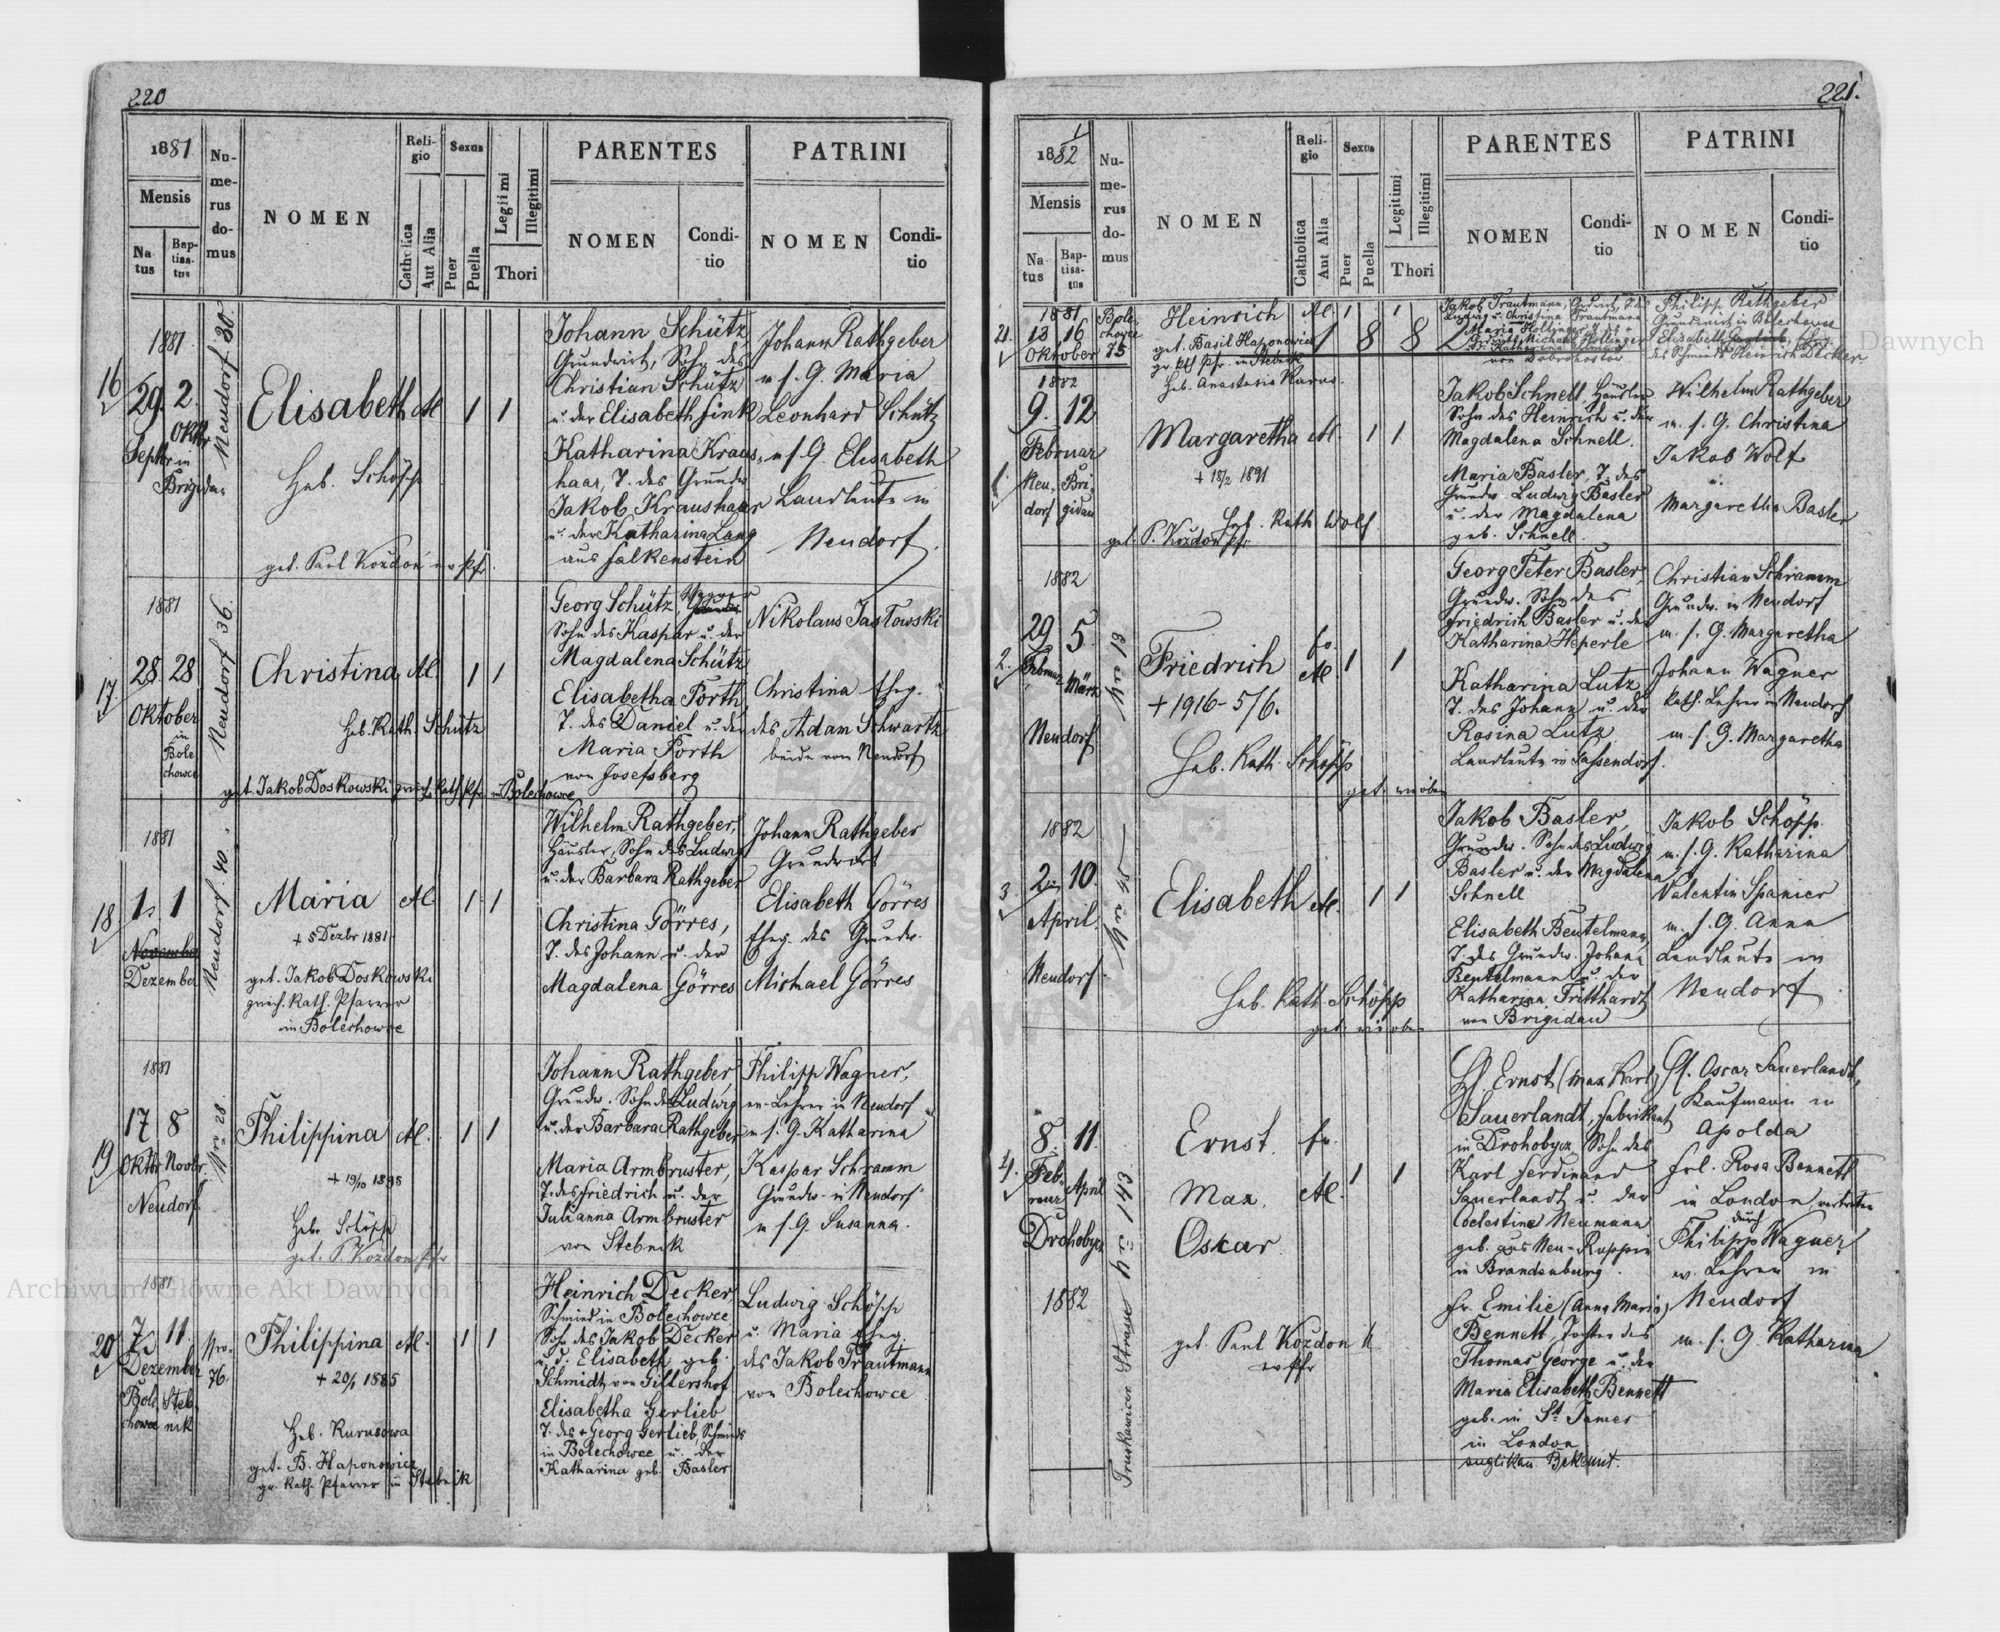 220
1881
Mensis
Na
tus
Bap-
tisa-
tus
Nu-
me-
rus
do-
mus
NOMEN
Reli-
gio
Catholica
Aut Alia
Sexus
Puer
Puella
Legitimi
Illegitimi
Thori
PARENTES
NOMEN
Condi-
tio
PATRINI
NOMEN
Condi-
tio
16
1881
29. 2.
Septbr Oktbr
in
Brigidau
Neudorf 30.
Elisabeth
Heb. Schöpp
get. Paul Kozdoń ev Pfr.
1 1
Johann Schütz,
Grundwirt, Sohn des
Christian Schütz
u. der Elisabeth Fink
Katharina Kraus-
haar, T. des Grundw
Jakob Kraushaar
u. der Katharina Lang
aus Falkenstein
Johann Rathgeber
u s. G. Maria
Leonhard Schütz
u s G. Elisabeth
Landleute in
Neudorf.
17
1881
28 28
Oktober
in
Bole
chowce
Neudorf 36.
Christina
Heb. Kath. Schütz
get. Jakob Doskowski griech. kath. Pfr. in Bolechowce
1 1
Georg Schütz,
Sohn des Kaspar u. der
Magdalena Schütz
Elisabetha Forth,
T. des Daniel u. der
Maria Forth
von Josefsberg
Nikolaus Jastowski
Christina Eheg.
des Adam Schwartz
beide von Neudorf
18
1881
1. 1
November
Dezember
Neudorf. 40.
Maria
+ 5 Dezbr 1881.
get. Jakob Doskowski
griech. kath. Pfarrer
in Bolechowce
1 1
Wilhelm Rathgeber,
Häusler, Sohn des Ludwig
u. der Barbara Rathgeber
Christina Görres,
T. des Johann u. der
Magdalena Görres
Johann Rathgeber
Grundwirt
Elisabeth Görres
Eheg. des Grundw.
Michael Görres
19
1881
17 8
Oktbr Novbr.
Neudorf.
Nro 28.
Philippina
+ 19/10 1895
Heb. Schöpp
get. P. Kozdon Pfr
1 1
Johann Rathgeber,
Grundw. Sohn des Ludwig
u. der Barbara Rathgeber
Maria Armbruster,
T. des Friedrich u. der
Julianna Armbruster
von Stebnik
Philipp Wagner,
ev. Lehrer in Neudorf
u s. G. Katharina
Kaspar Schramm
Grundw. in Neudorf
u s. G. Susanna.
20
1881
7. 11.
Dezember
Bole Steb-
chowce nik
Nro.
76.
Philippina
+ 20/1 1885
Heb. Kurusowa
get. B. Haponowicz
gr. kath. Pfarrer in Stebnik
1 1
Heinrich Decker,
Schmied in Bolechowce,
Sohn des Jakob Decker
u. d. Elisabeth geb.
Schmidt von Gillershof
Elisabetha Gerlieb
T. des + Georg Gerlieb, Schmieds
in Bolechowce u. der
Katharina geb. Basler
Ludwig Schöpp
u. Maria Eheg.
des Jakob Trautmann
von Bolechowce
221.
1881/82
Mensis
Na
tus
Bap-
tisa-
tus
Nu-
me-
rus
do-
mus
NOMEN
Reli-
gio
Catholica
Aut Alia
Sexus
Puer
Puella
Legitimi
Illegitimi
Thori
PARENTES
NOMEN
Condi-
tio
PATRINI
NOMEN
Condi-
tio
21.
1881
13 16
Oktober
Bole
chowce
75
Heinrich
get. Basil Haponowicz
gr. kth Pfr. in Stebnik
Heb. Anastasia Kurus.
1 1
1 8 8
Jakob Trautmann,
Ludwig u. Christina Trautmann
Maria Hollinger
Michael Hollinger
von Dobrohostow
Philipp Rathgeber
Grundwirt in Bolechowce
Elisabeth
des Schmieds Heinrich Decker
1.
1882
9. 12
Februar
Neu- Bri-
dorf gidau
Margaretha
+ 18/2 1891
Heb. Kath Wolf
get. P. Kozdon Pfr.
1 1
Jakob Schnell, Häusler
Sohn des Heinrich u. der
Magdalena Schnell.
Maria Basler, T. des
Grundw. Ludwig Basler
u. der Magdalena
geb. Schnell.
Wilhelm Rathgeber
u. s. G. Christina
Jakob Wolf
u.
Margaretha Basler
2.
1882
29 5.
Februar März
Neudorf
Nro 13
Friedrich
+ 1916 - 5/6.
Heb. Kath. Schöpp
get. wie oben
1 1
Georg Peter Basler,
Grundw. Sohn des
Friedrich Basler u. der
Katharina Heperle
Katharina Lutz
T. des Johann u. der
Rosina Lutz
Landleute in Sassendorf.
Christian Schramm
Grundw. in Neudorf
u. s. G. Margaretha
Johann Wagner
kath. Lehrer in Neudorf
u. s. G. Margaretha
3
1882
2. 10.
April.
Neudorf.
Nro 45
Elisabeth
Heb. Kath Schöpp
get. wie oben
1 1
Jakob Basler,
Grundw. Sohn des Ludwig
Basler u. der Magdalena
Schnell
Elisabeth Beutelmann,
T. des Grundw. Johann
Beutelmann u. der
Katharina Fritthardt
von Brigidau
Jakob Schöpp
u. s. G. Katharina
Valentin Spanier
u. s. G. Anna
Landleute in
Neudorf
4.
8. 11.
Feb- April
ruar
Drohobycz
1882
Truskawicer Strasse Nro 143
Ernst
Max,
Oskar
get. Paul Kozdon
ev Pfr
1 1
H. Ernst (Max Karl)
Sauerlandt, Fabrikant
in Drohobycz Sohn des
Karl Ferdinand
Sauerlandt u. der
Coelestine Neumann
geb. aus Neu-Ruppin
in Brandenburg.
Fr. Emilie (Anna Maria)
Bennett, Tochter des
Thomas George u. der
Maria Elisabeth Bennett
geb. in St. James
in London
anglikan. Bekennt.
H. Oscar Sauerlandt,
Kaufmann in
Apolda
Frl. Rosa Bennett
in London vertreten
durch
Philipp Wagner
ev. Lehrer in
Neudorf
u. s. G. Katharina
Archiwum Główne Akt Dawnych
Dawnych